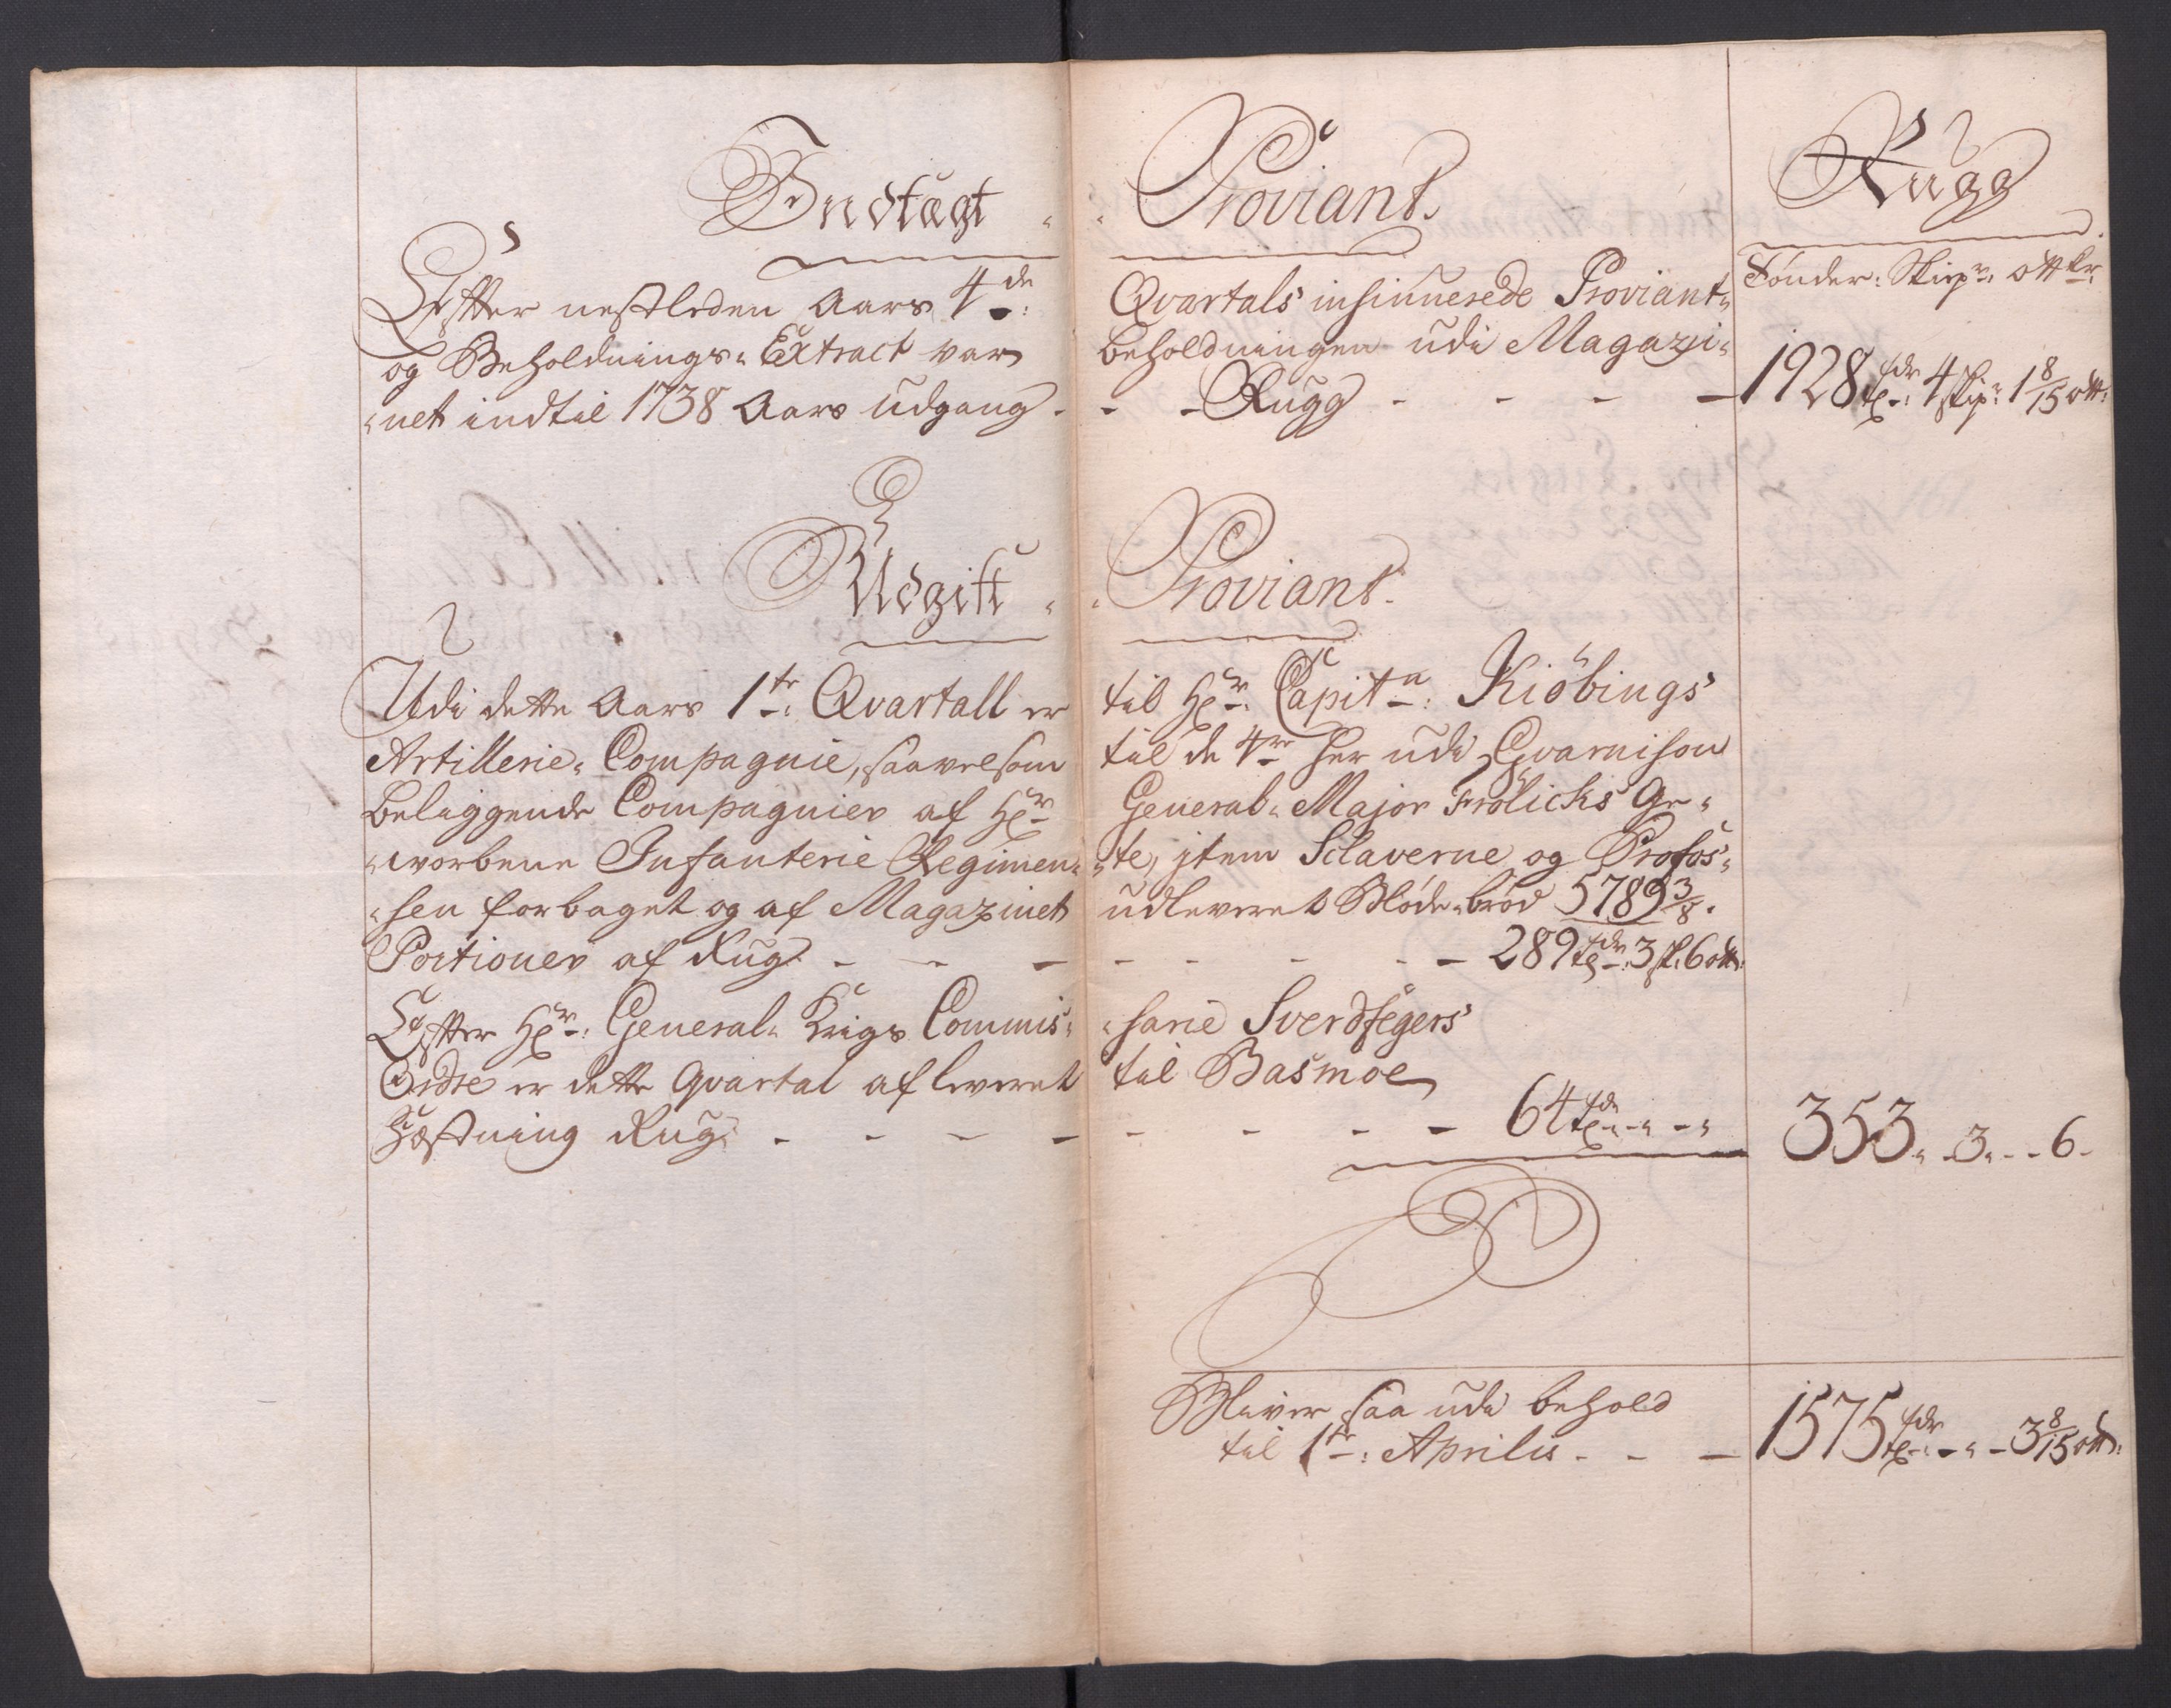 Indtægt - - Proviant. Rugg
Efter nestleden Aars 4de: Qvartals insinuerede Proviant- Tønder: Skipr: ottkr:
og Beholdnings- Extract var beholdningen udi Magazi-
-net indtil 1738 Aars udgang - - - Rugg - - - - 1928 tdr: 4 skip: 1 8/15 ott:
Udgift - - Proviant.
Udi dette Aars 1te: Qvartall er til Hr: Capitn: Kiöbings
Artillerie- Compagnie, saavelsom til de 4re her udi Gvarnison
beliggende Compagnier af Hr General- Major Frölichs Ge-
-worbene Infanterie Regimen- -te, jtem Sclaverne og Profos-
-sen forbaget og af Magazinet udleveret Bløde-brød 5789 3/8.
Portioner af Rug - - - - - - - - 289 tdr: 3 sk: 6 ott:
Efter Hr: General- Krigs Commis- -sarie Sverdfegers
Ordre er dette Qvartal afleveret til Basmoe
Fæstning Rug - - - - - - - - 64 tdr - - - - 353. - 3. - - 6 -
Bliver saa udi behold
til 1te: Aprilis - - - 1575 tdr: - - - 3 8/15 ott: